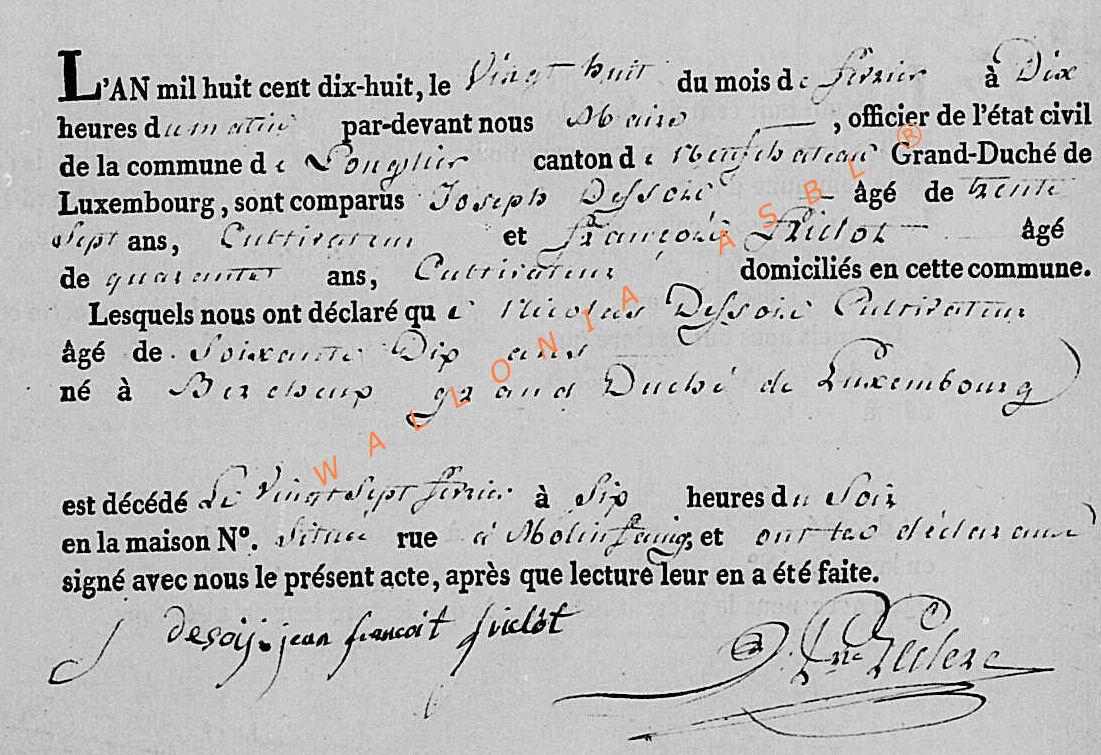 L'AN mil huit cent dix-huit, le Vingt huit du mois de fevrier à Dix
heures du matin par-devant nous Maire, officier de l'état civil
de la commune de Longlier canton de Neufchateau Grand-Duché de
Luxembourg, sont comparus Joseph Dessoie âgé de trente
Sept ans, Cultivateur et françois Friclot âgé
de quarante ans, Cultivateur domiciliés en cette commune.
Lesquels nous ont déclaré que Nicolas Dessoie Cultivateur
âgé de Soixante Dix ans
né à Bercheup grand Duché de Luxembourg
est décédé Le Vingt Sept fevrier à Six heures du Soir
en la maison N°. Située rue à Molinfaing, et ont les déclarans
signé avec nous le présent acte, après que lecture leur en a été faite.
J desoij. jean francoit friclot
Leclerc
WALLONIA ASBL ®